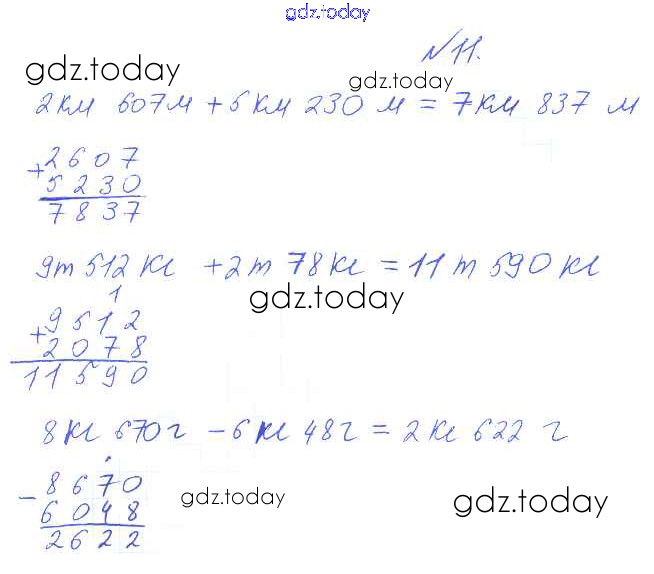 gdz.today
№11.
gdz.today gdz.today
2 км 607 м + 5 км 230 м = 7 км 837 м
+ 2607
5230
7837
9 т 512 кг + 2 т 78 кг = 11 т 590 кг
gdz.today
1
+ 9512
2078
11590
8 кг 670 г - 6 кг 48 г = 2 кг 622 г
- 8670
6048
2622
gdz.today gdz.today